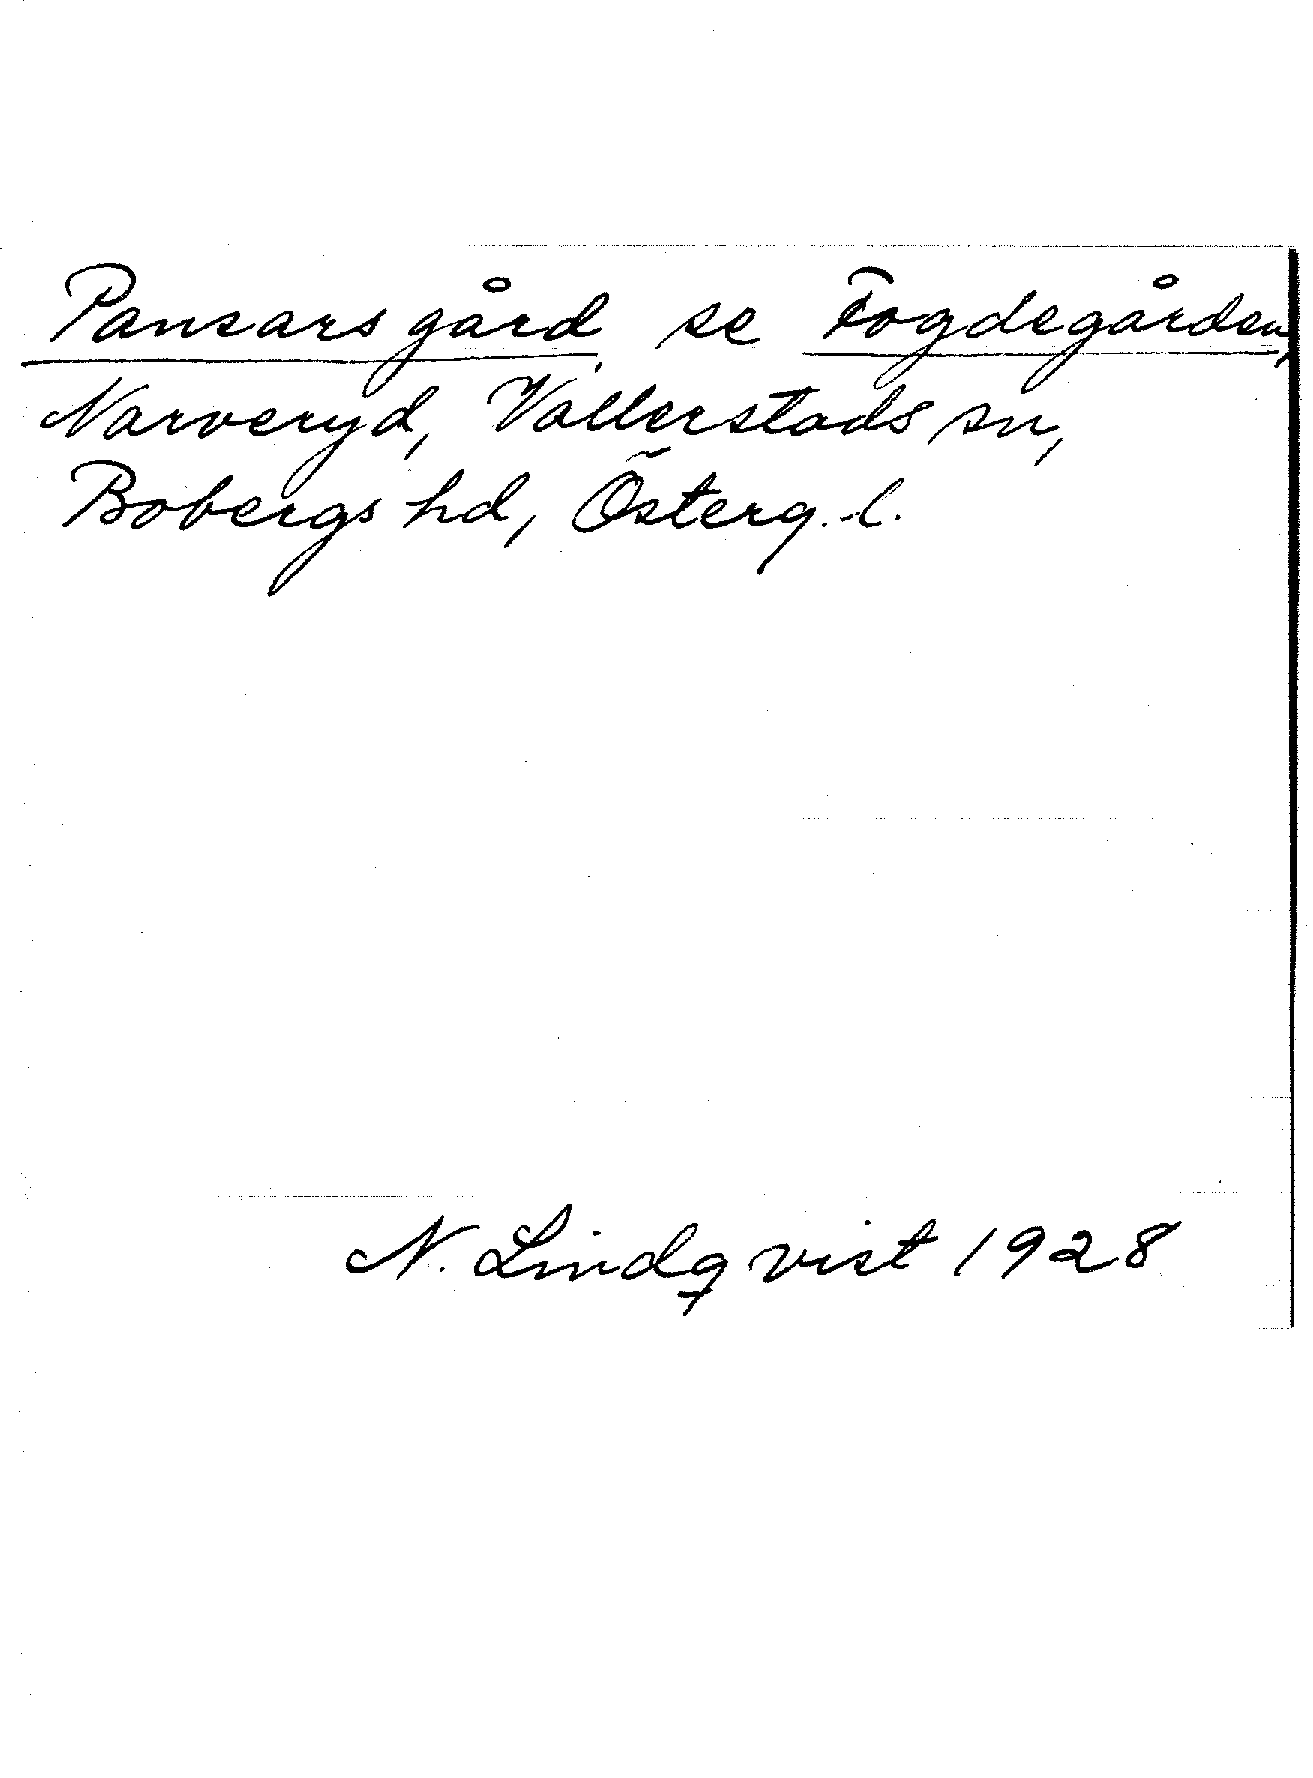 Pansarsgård se Fogdegården,
Narveryd, Vallerstads sn,
Bobergs hd, Österg. l.
N. Lindqvist 1928